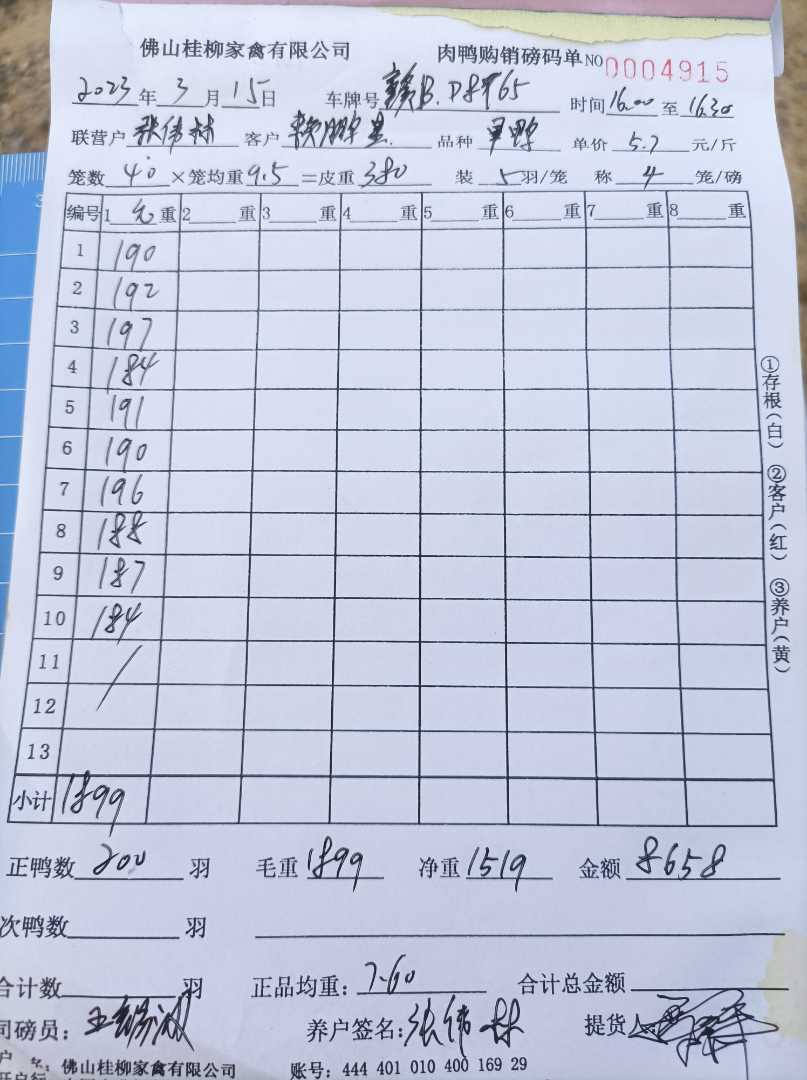 佛山桂柳家禽有限公司 肉鸭购销磅码单 NO 0004915
2023年3月15日 车牌号 赣B. 时间16.00至16.30
联营户 张伟林 客户 赖鹏 品种 单价 5.7 元/斤
笼数 40 ×笼均重 9.5 =皮重 380 装 5 羽/笼 称 4 笼/磅
编号 1 重 2 重 3 重 4 重 5 重 6 重 7 重 8 重
1 190
2 192
3 197
4 184
5 191
6 190
7 196
8 188
9 187
10 184
11
12
13
小计 1899
正鸭数 200 羽 毛重 1899 净重 1519 金额 8658
次鸭数 羽
合计数 羽 正品均重: 7.60 合计总金额
司磅员: 王 养户签名: 张伟林 提货人
户 名: 佛山桂柳家禽有限公司 账号: 444 401 010 400 169 29
开户行
①存根(白) ②客户(红) ③养户(黄)